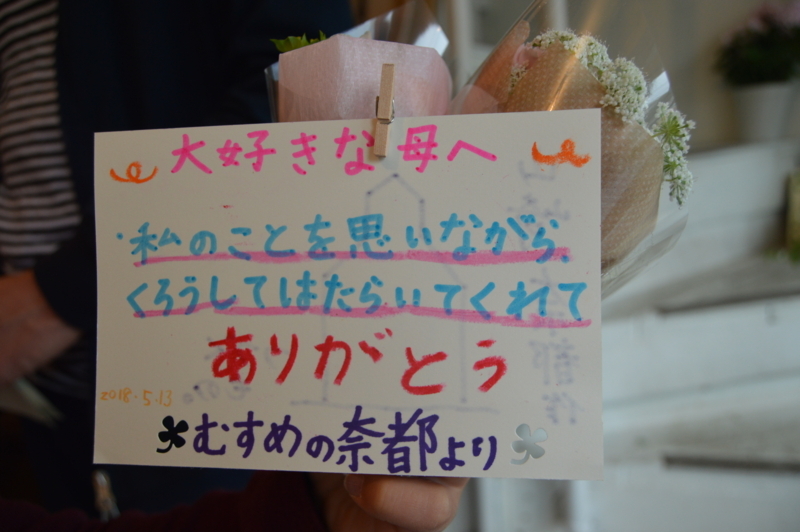 大好きな母へ
私のことを思いながら、
くろうしてはたらいてくれて
ありがとう
2018.5.13
むすめの奈都より